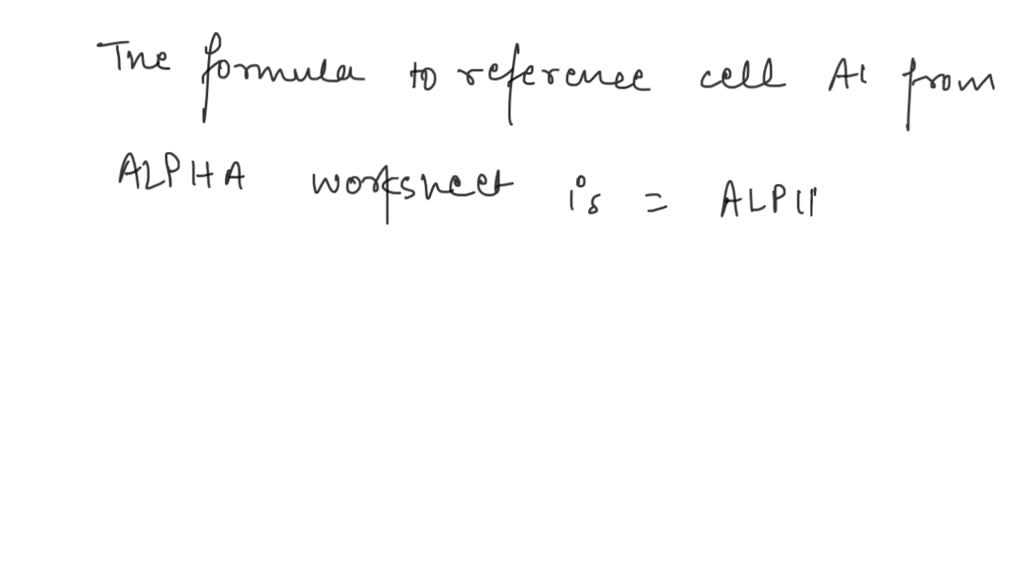 The formula to reference cell A1 from
ALPHA worksheet is = ALP